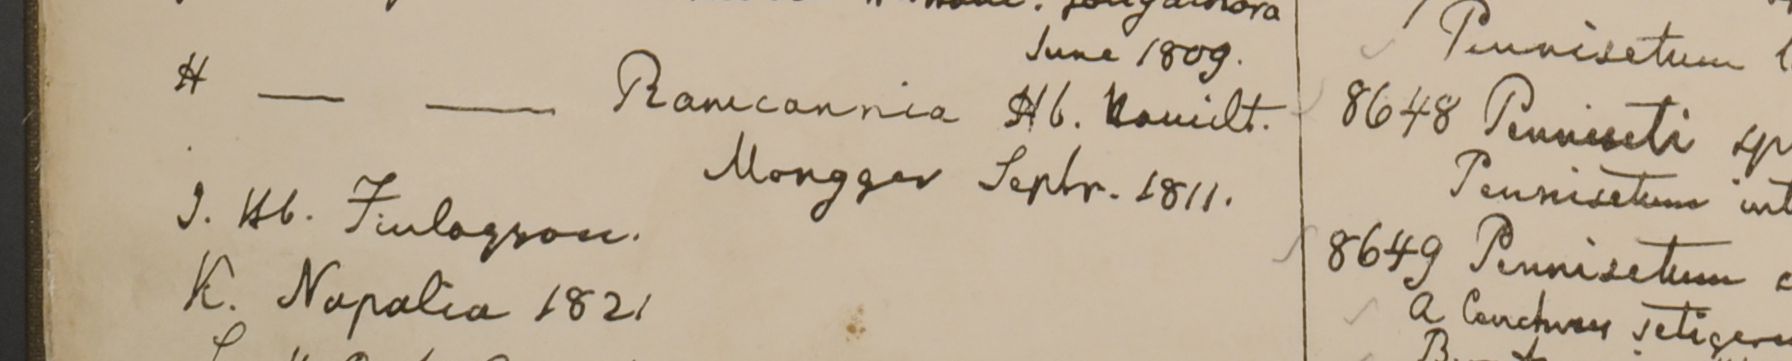 June 1809.
H — — Ramcannia Hb. Hamilt.
Mongger Septr. 1811.
J. Hb. Finlayson.
K. Napalia 1821
Pennisetum
8648 Penniseti sp
Pennisetum int
8649 Pennisetum
a Cenchrus setigera